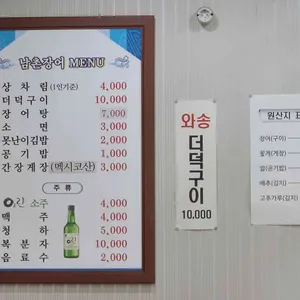 남촌장어 MENU
상차림(1인기준) 4,000
더덕구이 10,000
장어탕 7,000
소면 3,000
못난이김밥 2,000
공기밥 1,000
간장게장(멕시코산) 3,000
주류
소주 4,000
맥주 4,000
청하 5,000
복분자 10,000
음료수 2,000
와송
더덕구이
10,000
원산지 표
장어(구이)
꽃게(게장)
쌀(공기밥)
배추(김치)
고추가루(김치)